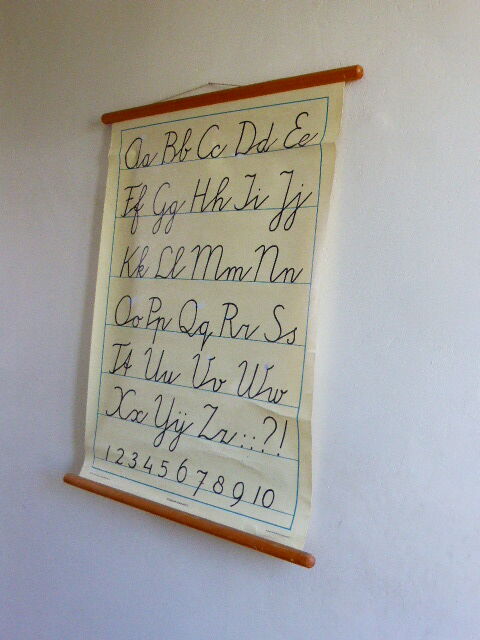 Aa Bb Cc Dd Ee
Ff Gg Hh Ii Jj
Kk Ll Mm Nn
Oo Pp Qq Rr Ss
Tt Uu Vv Ww
Xx Yÿ Zz : ; ? !
1 2 3 4 5 6 7 8 9 10